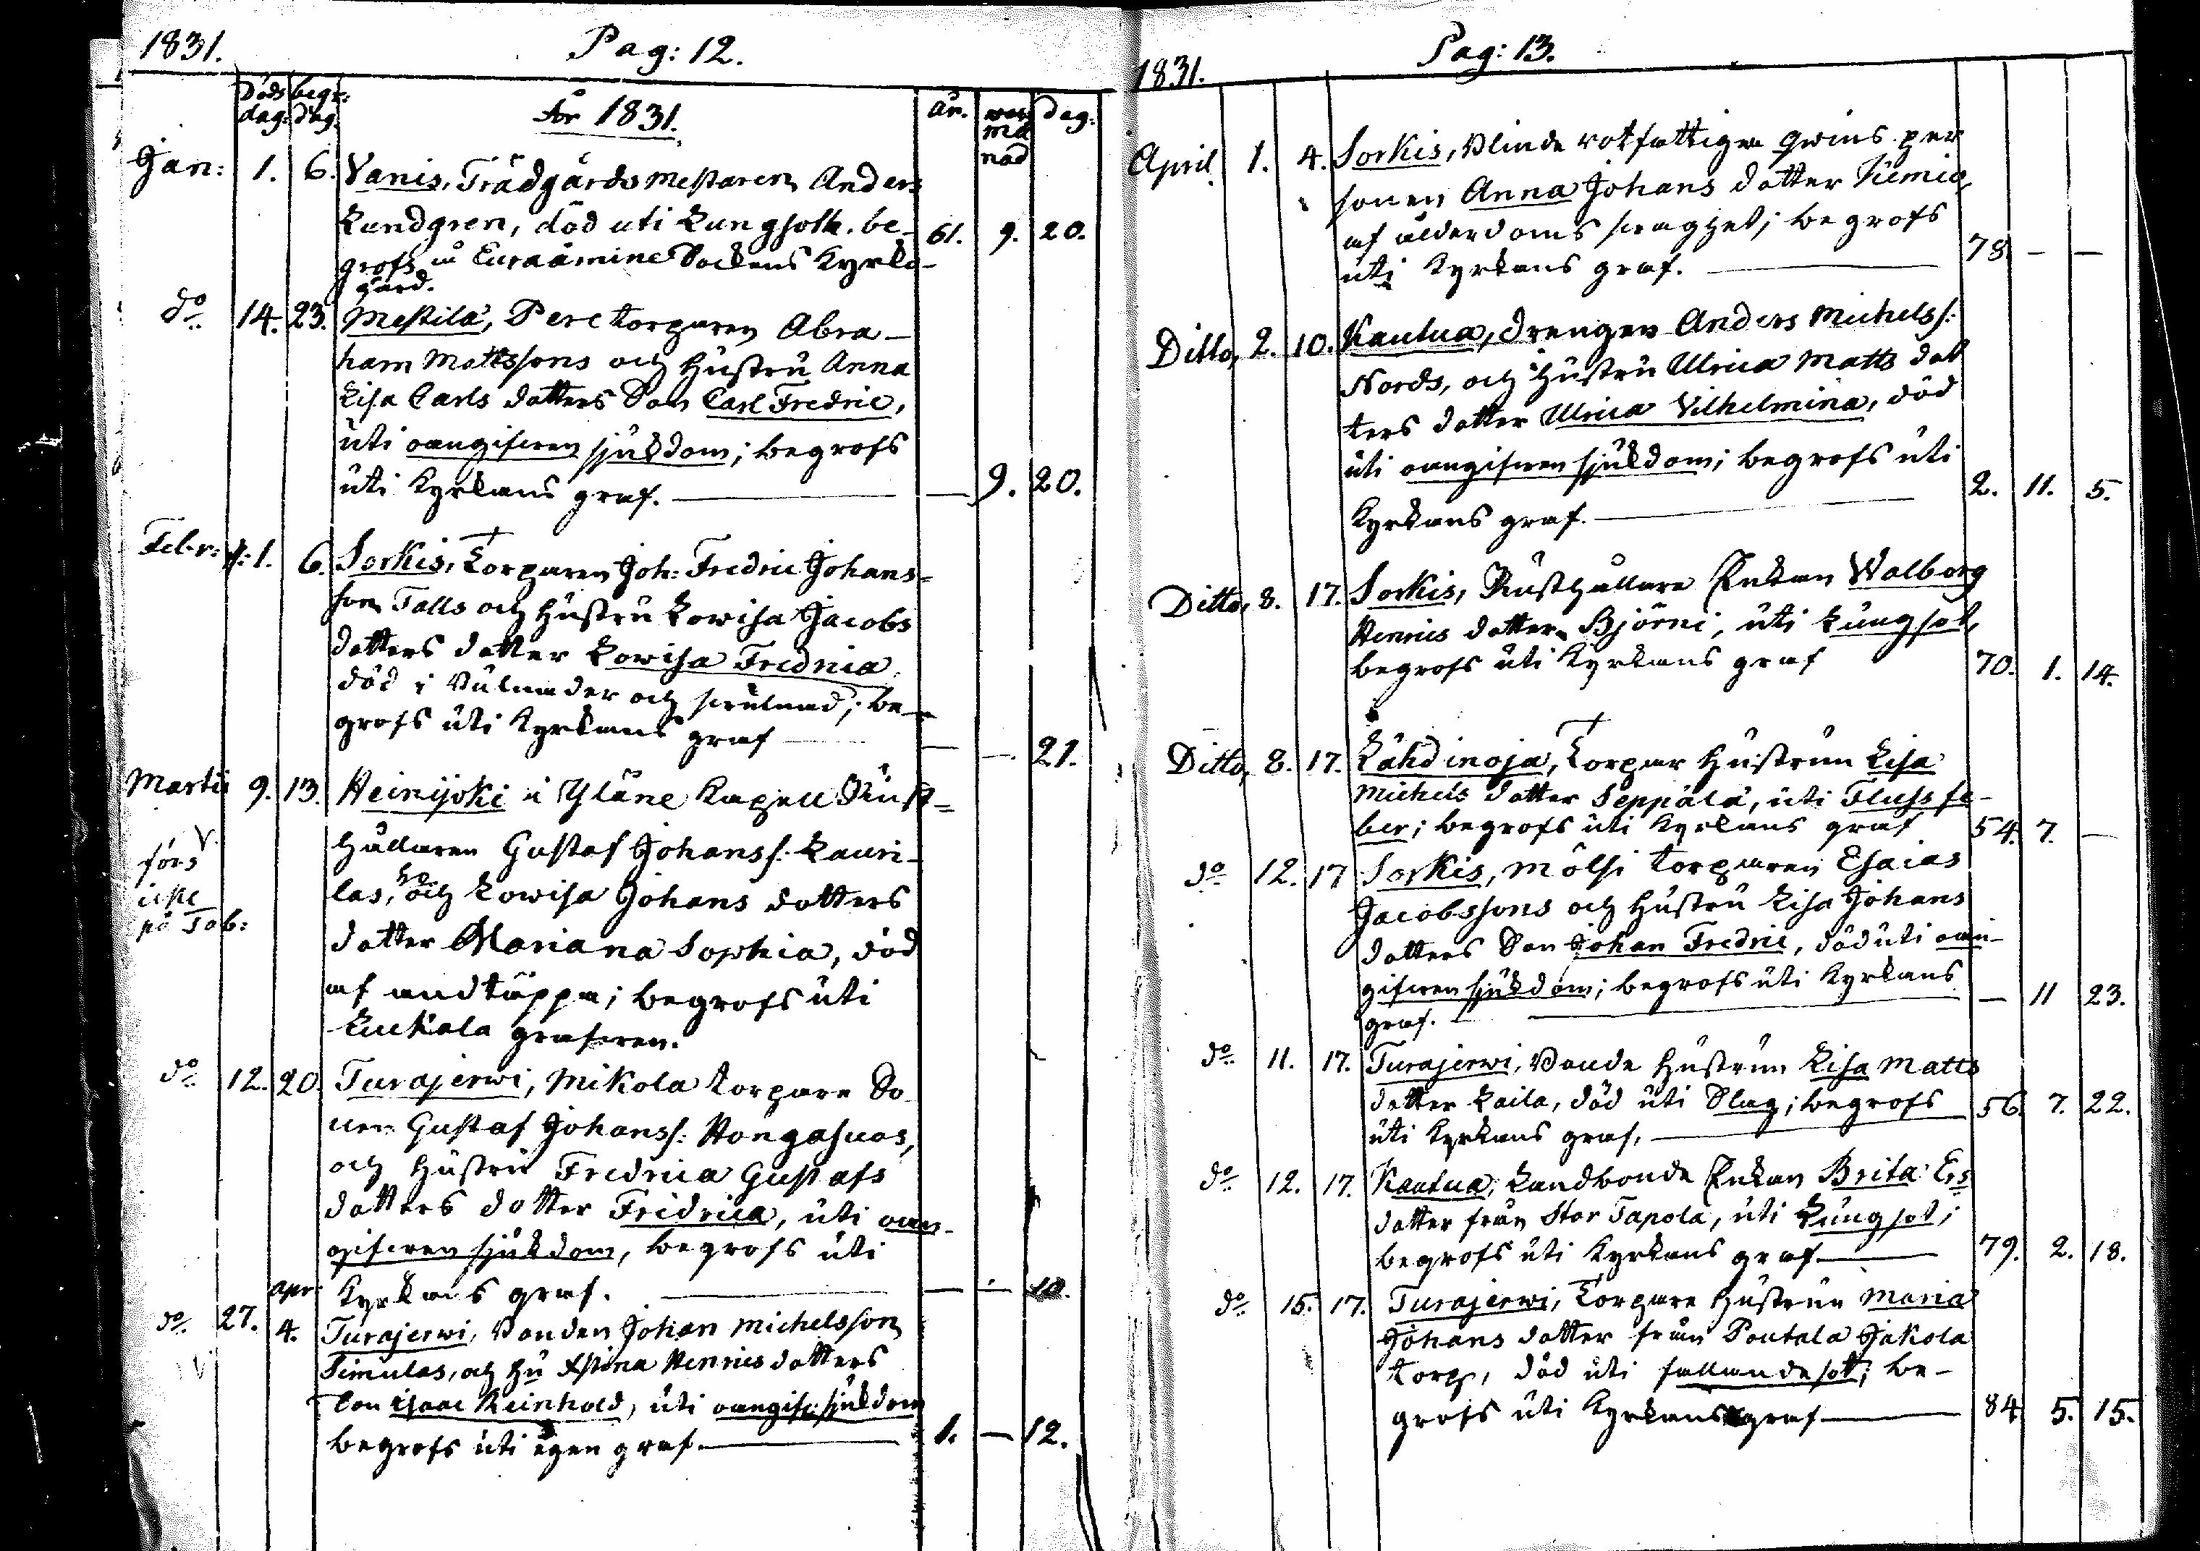 1831. Pag: 12.
Döds dag: begr: dag. År 1831. år. må nad dag:
Jan: 1. 6. Vanis, Trädgårds mestaren Anders
Lundgren, död uti Lungsot. be- 61. 9. 20.
grofs å Euraåminne Sockens Kyrko-
gård.
do 14. 23. Mestilä, Pere torparen Abra-
ham Mattssons och Hustru Anna
Lisa Carls dotters Son Carl Fredric,
uti oangifven sjukdom; begrofs
uti Kyrkans graf. — — 9. 20.
Febr: 1. 6. Sorkis, Torparen Joh: Fredric Johans-
son Talls och Hustru Lowisa Jacobs
dotters dotter Lowisa Fredrica
död i och ; be-
grofs uti Kyrkans graf — — — 21.
Martii 9. 13. Heinijoki i Yläne Kapell Rust-
hållaren Gustaf Johanss: Lauri-
förs
las, och Lowisa Johans dotters
icke
på Tab:
dotter Mariana Sophia, död
af andtäppa; begrofs uti
Luckala grafven.
do 12. 20. Turajerwi, Mikola torpare So
nen Gustaf Johanss: Hongasuos,
och Hustru Fredrica Gustafs
dotters dotter Fridrica, uti oan-
gifven sjukdom, begrofs uti
apr: Kyrkans graf. — — — 10.
do 27. 4. Turajerwi, Bonden Johan Michelsson
Simulas, och Hu Stina Henrics dotters
Son Isaac Reinhold, uti oangif: sjukdom
begrofs uti egen graf. — 1. — 12.
1831. Pag: 13.
April 1. 4. Sorkis, Blinda rotfattiga qwins per
sonen Anna Johans dotter
af ålderdoms svaghet; begrofs
uti Kyrkans graf. — 78. — —
Ditto, 2. 10. Kautua, drengen Anders Michelss:
Nords, och Hustru Ulrica Matts dot
ters dotter Ulrica Vilhelmina, död
uti oangifven sjukdom; begrofs uti
Kyrkans graf. — 2. 11. 5.
Ditto, 8. 17. Sorkis, Rusthållare Enkan Walborg
Henrics dotter Björni, uti Lungsot,
begrofs uti Kyrkans graf 70. 1. 14.
Ditto, 8. 17. Lähdinoja, Torpar Hustrun Lisa
Michels dotter Seppälä, uti Flussfe-
ber; begrofs uti Kyrkans graf 54. 7. —
do 12. 17 Sorkis, Mölsi torparen Esaias
Jacobssons och Hustru Lisa Johans
dotters Son Johan Fredric, död uti oan-
gifven sjukdom; begrofs uti Kyrkans
graf. — — 11 23.
do 11. 17. Turajerwi, Bonde Hustrun Lisa Matts
dotter Laila, död uti Slag; begrofs 56. 7. 22.
uti Kyrkans graf. —
do 12. 17. Kautua, Landbonde Enkan Brita Ers
dotter från Stor Tapola, uti Lungsot;
begrofs uti Kyrkans graf — 79. 2. 18.
do 15. 17. Turajerwi, Torpare Hustrun Maria
Johans dotter från Pontala Jakola
torp, död uti fallandesot; be-
grofs uti Kyrkans graf — 84 5. 15.